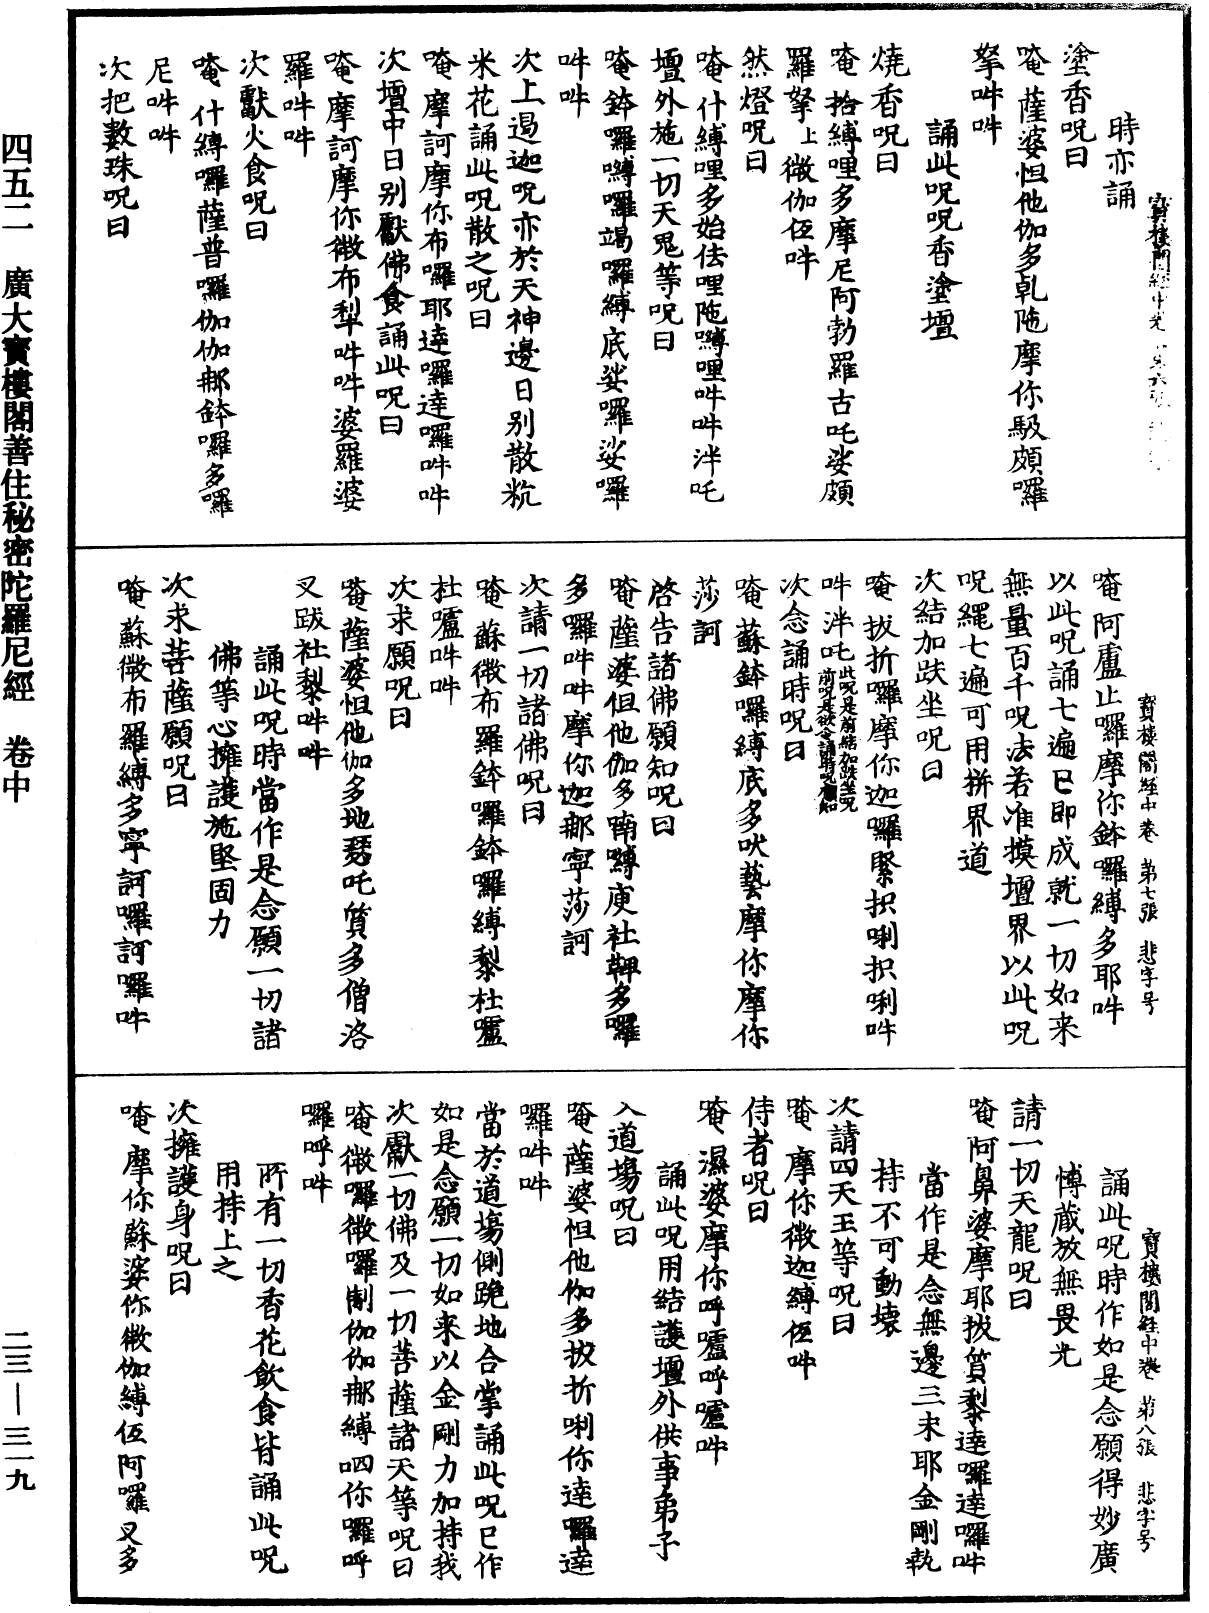 時亦誦
塗香呪曰
唵薩婆怛他伽多乹陁摩你馺頗囉
拏吽吽
誦此呪呪香塗壇
燒香呪曰
唵拾縛哩多摩尼阿勃羅古吒娑頗
羅拏上微伽伍吽
然燈呪曰
唵什縛哩多始佉哩陁嚩哩吽吽泮吒
壇外施一切天鬼等呪曰
唵鉢囉嚩囉竭囉縛底娑囉娑囉
吽吽
次上遏迦呪亦於天神邊日別散粇
米花誦此呪散之呪曰
唵摩訶摩你布囉耶達囉達囉吽吽
次壇中日別獻佛食誦此呪曰
唵摩訶摩你微布犁吽吽婆羅婆
羅吽吽
次獻火食呪曰
唵什縛囉薩普囉伽伽那鉢囉多囉
尼吽吽
次把數珠呪曰
寶樓閣經中卷 第七張 悲字号
唵阿盧止囉摩沵鉢囉縛多耶吽
以此呪誦七遍已即成就一切如来
無量百千呪法若准摸壇界以此呪
呪繩七遍可用拼界道
次結加趺坐呪曰
唵拔折囉摩你迦羅緊抧唎抧唎吽
吽泮吒此呪是前結加趺坐呪
次念誦時呪曰
唵蘇鉢囉縛底多吠藝摩你摩你
莎訶
啓告諸佛願知呪曰
唵薩婆但他伽多喃嚩庾社鞞多囉
多囉吽吽摩你迦那寧莎訶
次請一切諸佛呪曰
唵蘇微布羅鉢囉鉢囉縛黎杜嚧
杜嚧吽吽
次求願呪曰
唵薩婆怛他伽多地瑟吒質多僧洛
叉跋社黎吽吽
誦此呪時當作是念願一切諸
佛等心擁護施堅固力
次求菩薩願呪曰
唵蘇微布羅縛多寧訶囉訶囉吽
寶樓閣經中卷 第八張 悲字号
誦此呪時作如是念願得妙廣
慱藏放無畏光
請一切天龍呪曰
唵阿鼻婆摩耶拔質黎達囉達囉吽
當作是念無邊三末耶金剛執
持不可動壞
次請四天王等呪曰
唵摩你微迦縛伍吽
侍者呪曰
唵濕婆摩你呼嚧呼嚧吽
誦此呪用結護壇外供事弟子
入道場呪曰
唵薩婆怛他伽多拔折唎你達囉達
囉吽吽
當於道場側跪地合掌誦此呪已作
如是念願一切如来以金剛力加持我
次獻一切佛及一切菩薩諸天等呪曰
唵微囉微囉制伽伽那縛呬你囉呼
囉呼吽
所有一切香花飲食皆誦此呪
用持上之
次擁護身呪曰
唵摩你蘇婆你微伽縛伍阿囉叉多
四五二 廣大寶樓閣善住秘密陀羅尼經 卷中
二三—三一九